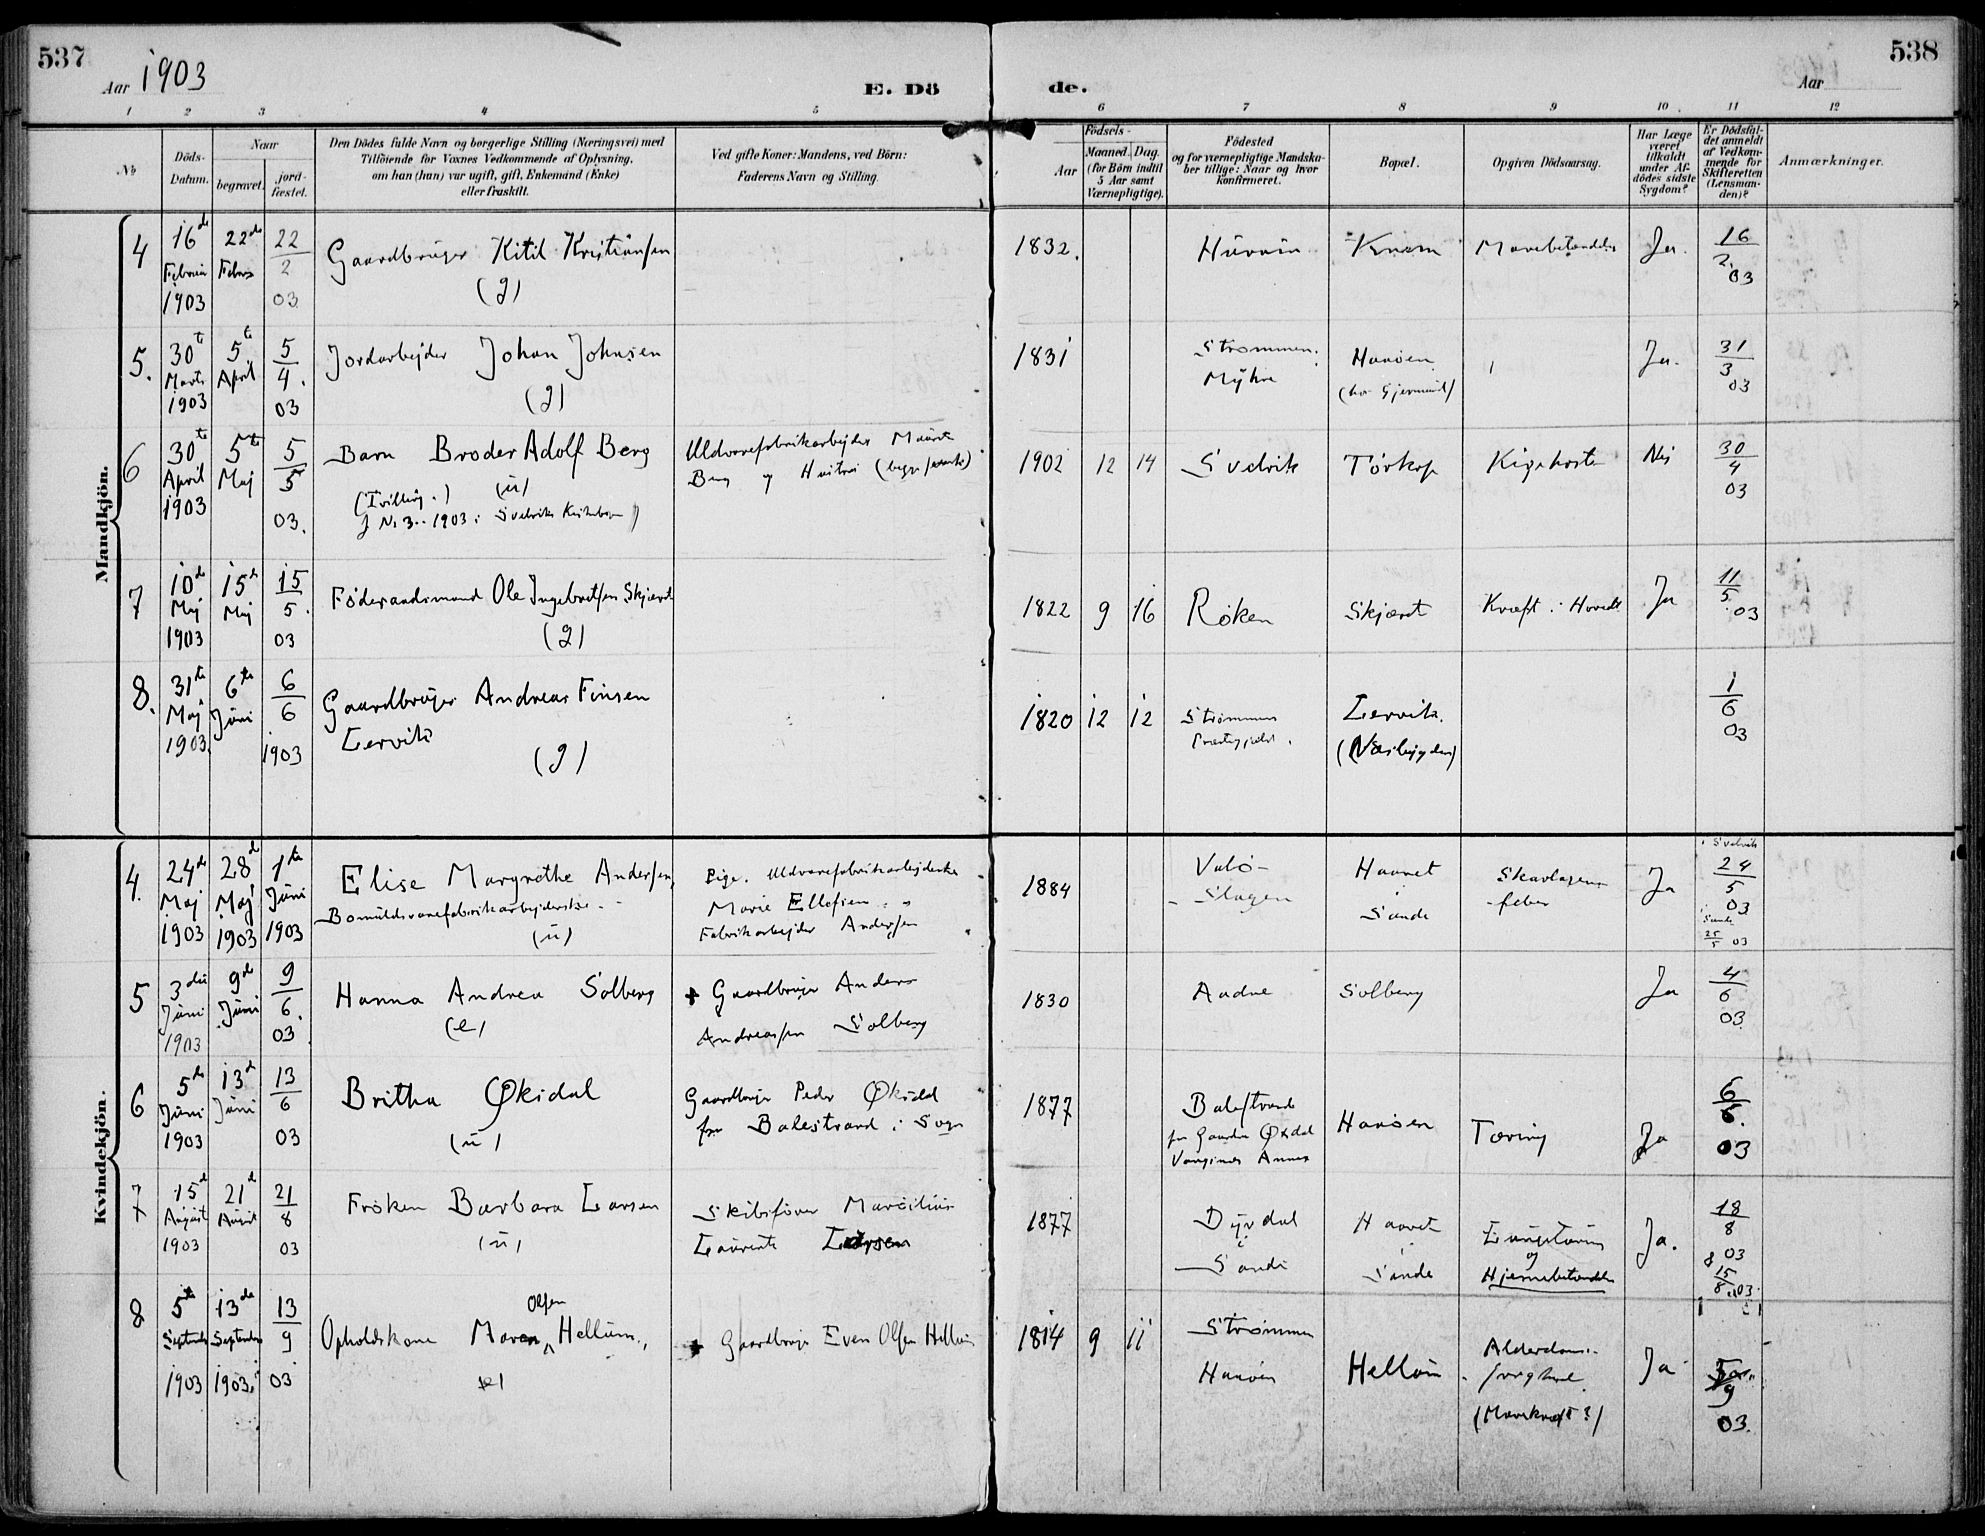 537
Aar 1903
E. Dö
de.
Aar
538
1 2 3 4 5 6 7 8 9 10 11 12
No
Döds-Datum.
Naar
begravet.
jord-fæstet.
Den Dödes fulde Navn og borgerlige Stilling (Næringsvei) med
Tilföiende for Voxnes Vedkommende af Oplysning,
om han (hun) var ugift, gift, Enkemand (Enke)
eller fraskilt.
Ved gifte Koner: Mandens, ved Börn:
Faderens Navn og Stilling.
Födsels-
Aar
Maaned. Dag.
(for Börn indtil
5 Aar samt
Værnepligtige).
Födested
og for værnepligtige Mandska-
ber tillige: Naar og hvor
konfirmeret.
Bopæl.
Opgiven Dödsaarsag.
Har Læge
været
tilkaldt
under Af-
dödes sidste
Sygdom?
Er Dödsfal-
det anmeldt
af Vedkom-
mende for
Skifteretten
(Lensman-
den)?
Anmærkninger.
Mandkjön.
4 16de Februar 1903 22de Febr 22/2 03 Gaardbruger Kitil Kristiansen (g) 1832. Knem Mavebetændelse Ja. 16/2 03
5. 30te Marts 1903 5te April 5/4. 03 Jordarbejder Johan Johnsen (g) 1831 Strømmen. Myhre Haaøen (hos Gjermund) Ja. 31/3 03
6 30te April 1903 5te Maj 5/5 03. Barn Broder Adolf Berg (u) (Tvilling.) Uldvarefabrikarbejder
Berg og Hustru 1902 12 14 Svelvik Tørkop Kighoste Nej 30/4 03
7 10de Maj 1903 15de Maj 15/5. 03 Føderaadsmand Ole Ingebretsen Skjæret (g) 1822 9 16 Røken Skjæret Kræft i Hovedet Ja 11/5 03
8. 31te Maj 1903. 6te Juni 6/6 1903 Gaardbruger Andreas Finsen
Lervik (g) 1820 12 12 Strømmen
Præstegjeld. Lervik. (Næsbygden) 1/6 03
Kvindekjön.
4. 24de Maj 1903 28de Maj 1903 1ste Juni 1903 Elise Margrethe Andersen,
Bomuldsvarefabrikarbejderske (u) Pige. Uldvarefabrikarbejderske
Marie Ellefsen
Fabrikarbejder Andersen 1884 Valø-
Slagen Haavet i Sande Skarlagens-
feber Ja i Svelvik 24/5 03 i Sande 25/5 03
5 3die Juni 1903 9de Juni 9/6. 03 Hanna Andrea Solberg (e) + Gaardbruger Anders
Andreassen Solberg 1830 Aadne Solberg Ja 4/6 03
6 5te Juni 1903 13de Juni 13/6 03 Britha Økidal (u) Gaardbruger Peder Økidal
fra Balestrand i Sogn 1877 Balestrand
fra Gaarden Økidal
Vangsnes Annex Haaøen Tæring Ja 6/6. 03
7 15de August 1903 21de August 21/8 03 Frøken Barbara Larsen (u) Skibsfører Marsilius
Laurents Larsen 1877 Dyrdal
i Sande Haavet i Sande Lungetæring
og
Hjernebetændelse Ja. 18/8 03 15/8 03.
8 5te September 1903 13de September 1903. 13/9 03 Opholdskone Maren Olsen Hellum., (e) + Gaardbruger Even Olsen Hellum 1814 9 11 Strømmen
Haaøen Hellum Alderdoms-
(Mavekræft?) Ja 5/9 03.